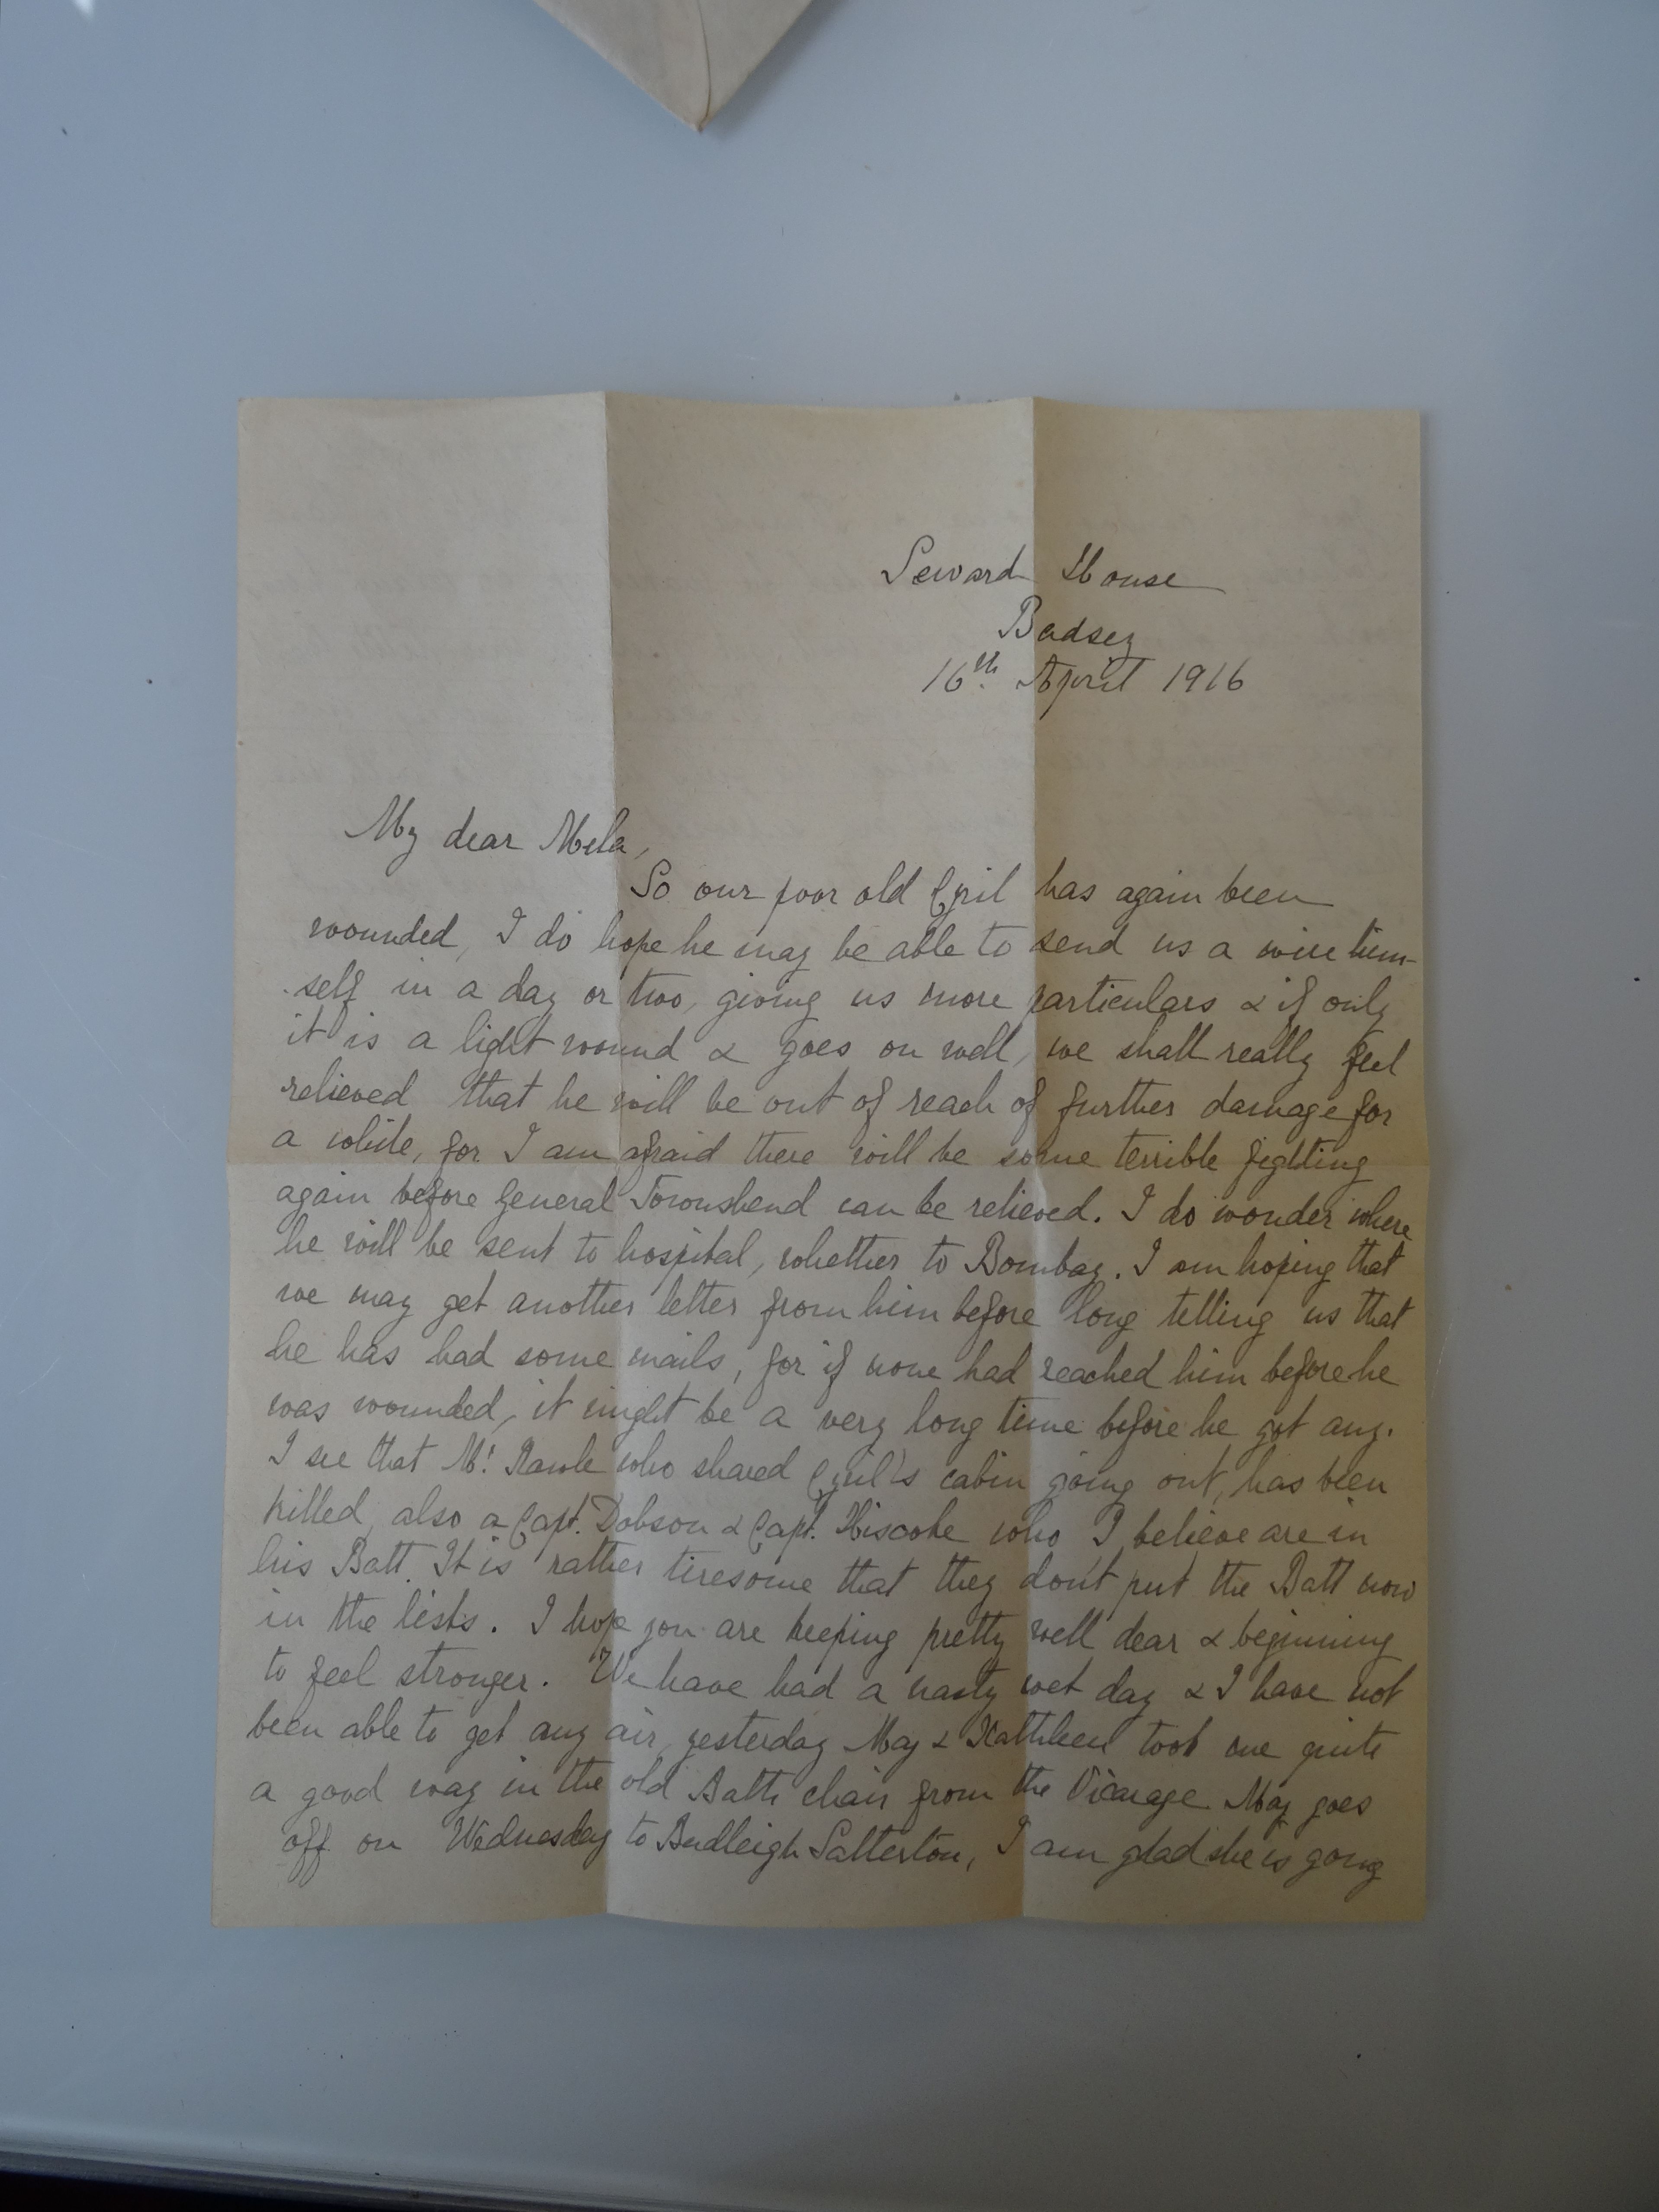 Seward House
Badsey
16th. April 1916
My dear Mela,
So our poor old Cyril has again been
wounded, I do hope he may be able to send us a wire him-
self in a day or two, giving us more particulars & if only
it is a light wound & goes on well, we shall really feel
relieved that he will be out of reach of further damage for
a while, for I am afraid there will be some terrible fighting
again before General Townshend can be relieved. I do wonder where
he will be sent to hospital, whether to Bombay. I am hoping that
we may get another letter from him before long telling us that
he has had some mails, for if none had reached him before he
was wounded, it might be a very long time before he got any.
I see that Mr. Rawle who shared Cyril's cabin going out, has been
killed, also a Capt. Dobson & Capt. Hiscoke who I believe are in
his Batt. It is rather tiresome that they don't put the Batt now
in the lists. I hope you are keeping pretty well dear & beginning
to feel stronger. We have had a nasty wet day & I have not
been able to get any air, yesterday May & Kathleen took me quite
a good way in the old Bath chair from the Vicarage. May goes
off on Wednesday to Budleigh Salterton, I am glad she is going